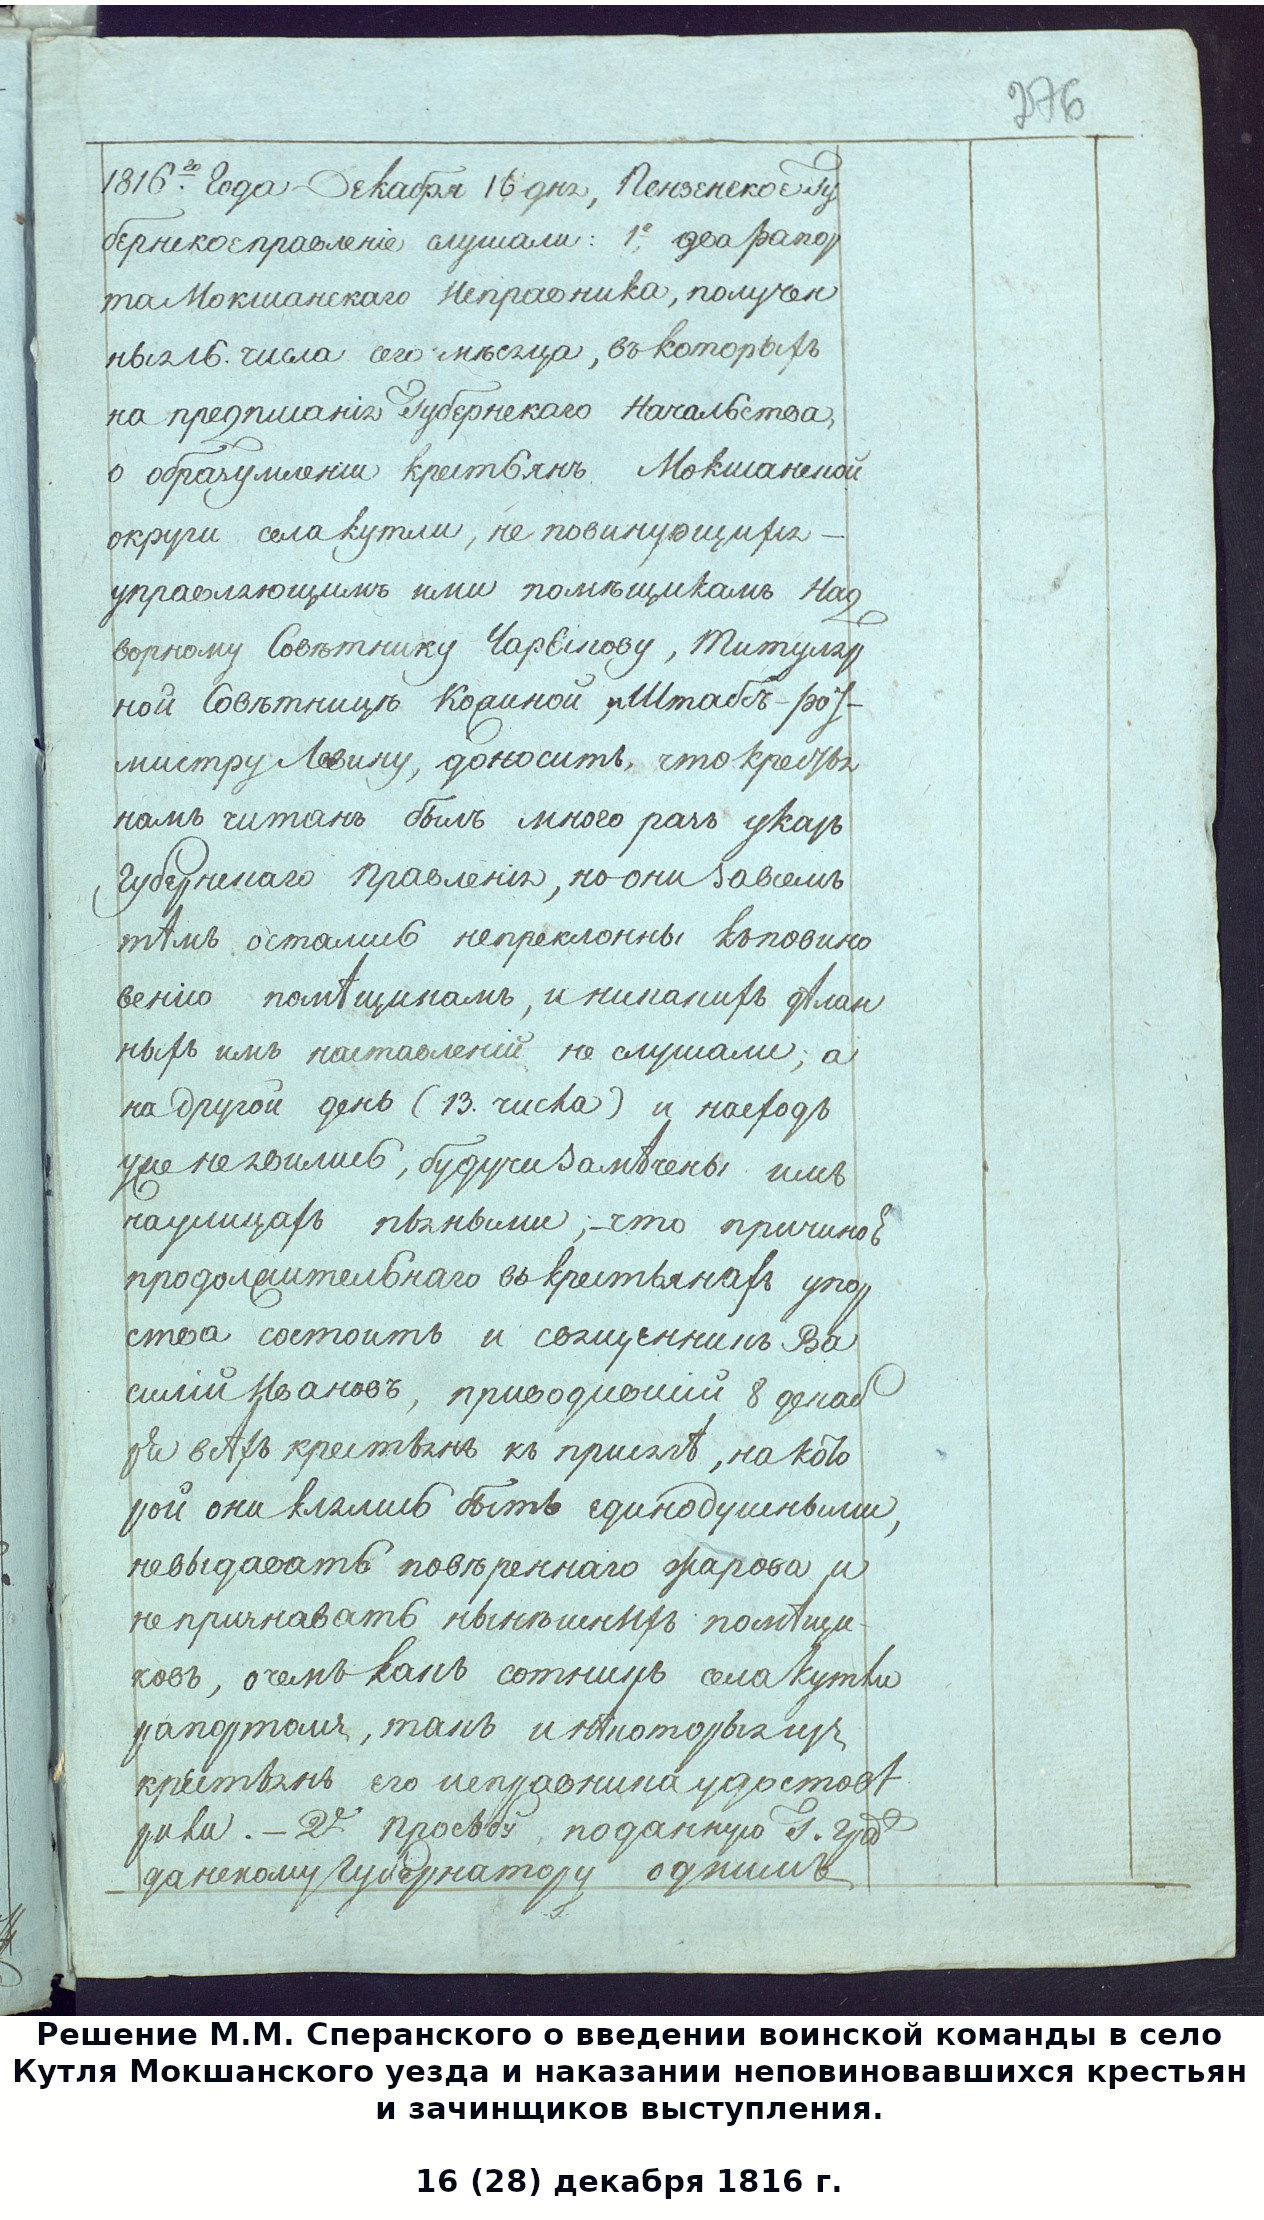 276
1816го Года Декабря 16 дня, Пензенское Гу
бернское правленіе слушали: 1е, два рапор
та Мокшанскаго Исправника, получен
ныя 16. числа сего мѣсяца, въ которыхъ
на предписанія Губернскаго Начальства,
о образумленіи крестьянъ Мокшанской
округи села Кутли, не повинующихся —
управляющимъ ими помѣщикамъ Над
ворному Совѣтнику, Титуляр
ной Совѣтницѣ и Штабъ-рот-
мистру Левину, доноситъ, что крестья
намъ читанъ былъ много разъ указъ
Губернскаго Правленія, но они За всемъ
тѣмъ остались непреклонны къ повино
венію помѣщикамъ, и никакихъ дѣлан
ныхъ имъ наставленій не слушали; а
на другой день (13. числа) и на сходъ
уже не явились, будучи Замѣчены имъ
на улицахъ пьяными; – что причиной
продолжительнаго въ крестьянахъ упор
ства состоитъ и священникъ Ва
силій Ивановъ, приводившій 8 декаб
ря всѣхъ крестьянъ къ присягѣ, на кото
рой они клялись быть единодушными,
не выдавать повѣреннаго и
не признавать нынѣшнихъ помѣщи-
ковъ, о чемъ какъ сотникъ села Кутли
рапортомъ, такъ и нѣкоторыя изъ
крестьянъ его исправника удостовѣ
рили. — 2е Прозбу поданную Г. Граж
данскому Губернатору однимъ
Решение М.М. Сперанского о введении воинской команды в село
Кутля Мокшанского уезда и наказании неповиновавшихся крестьян
и зачинщиков выступления.
16 (28) декабря 1816 г.